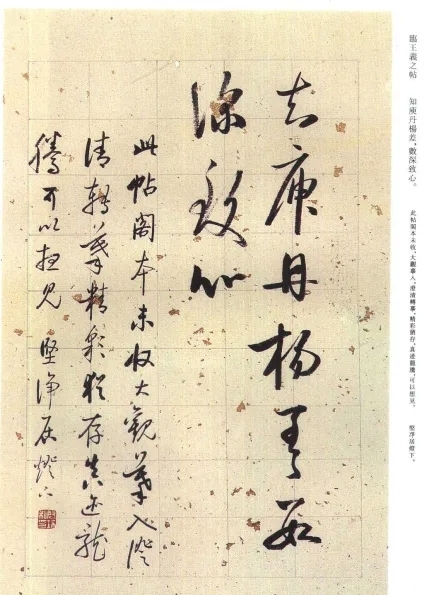 臨王羲之帖 知庾丹楊差，數深致心。 此帖閣本未收，大觀摹入，澄清轉摹，精彩猶存，真迹龍騰，可以想見。 堅淨居燈下。
知庾丹楊差數
深致心
此帖閣本未收大觀摹入澄
清轉摹精彩猶存真迹龍
騰可以想見 堅淨居燈下